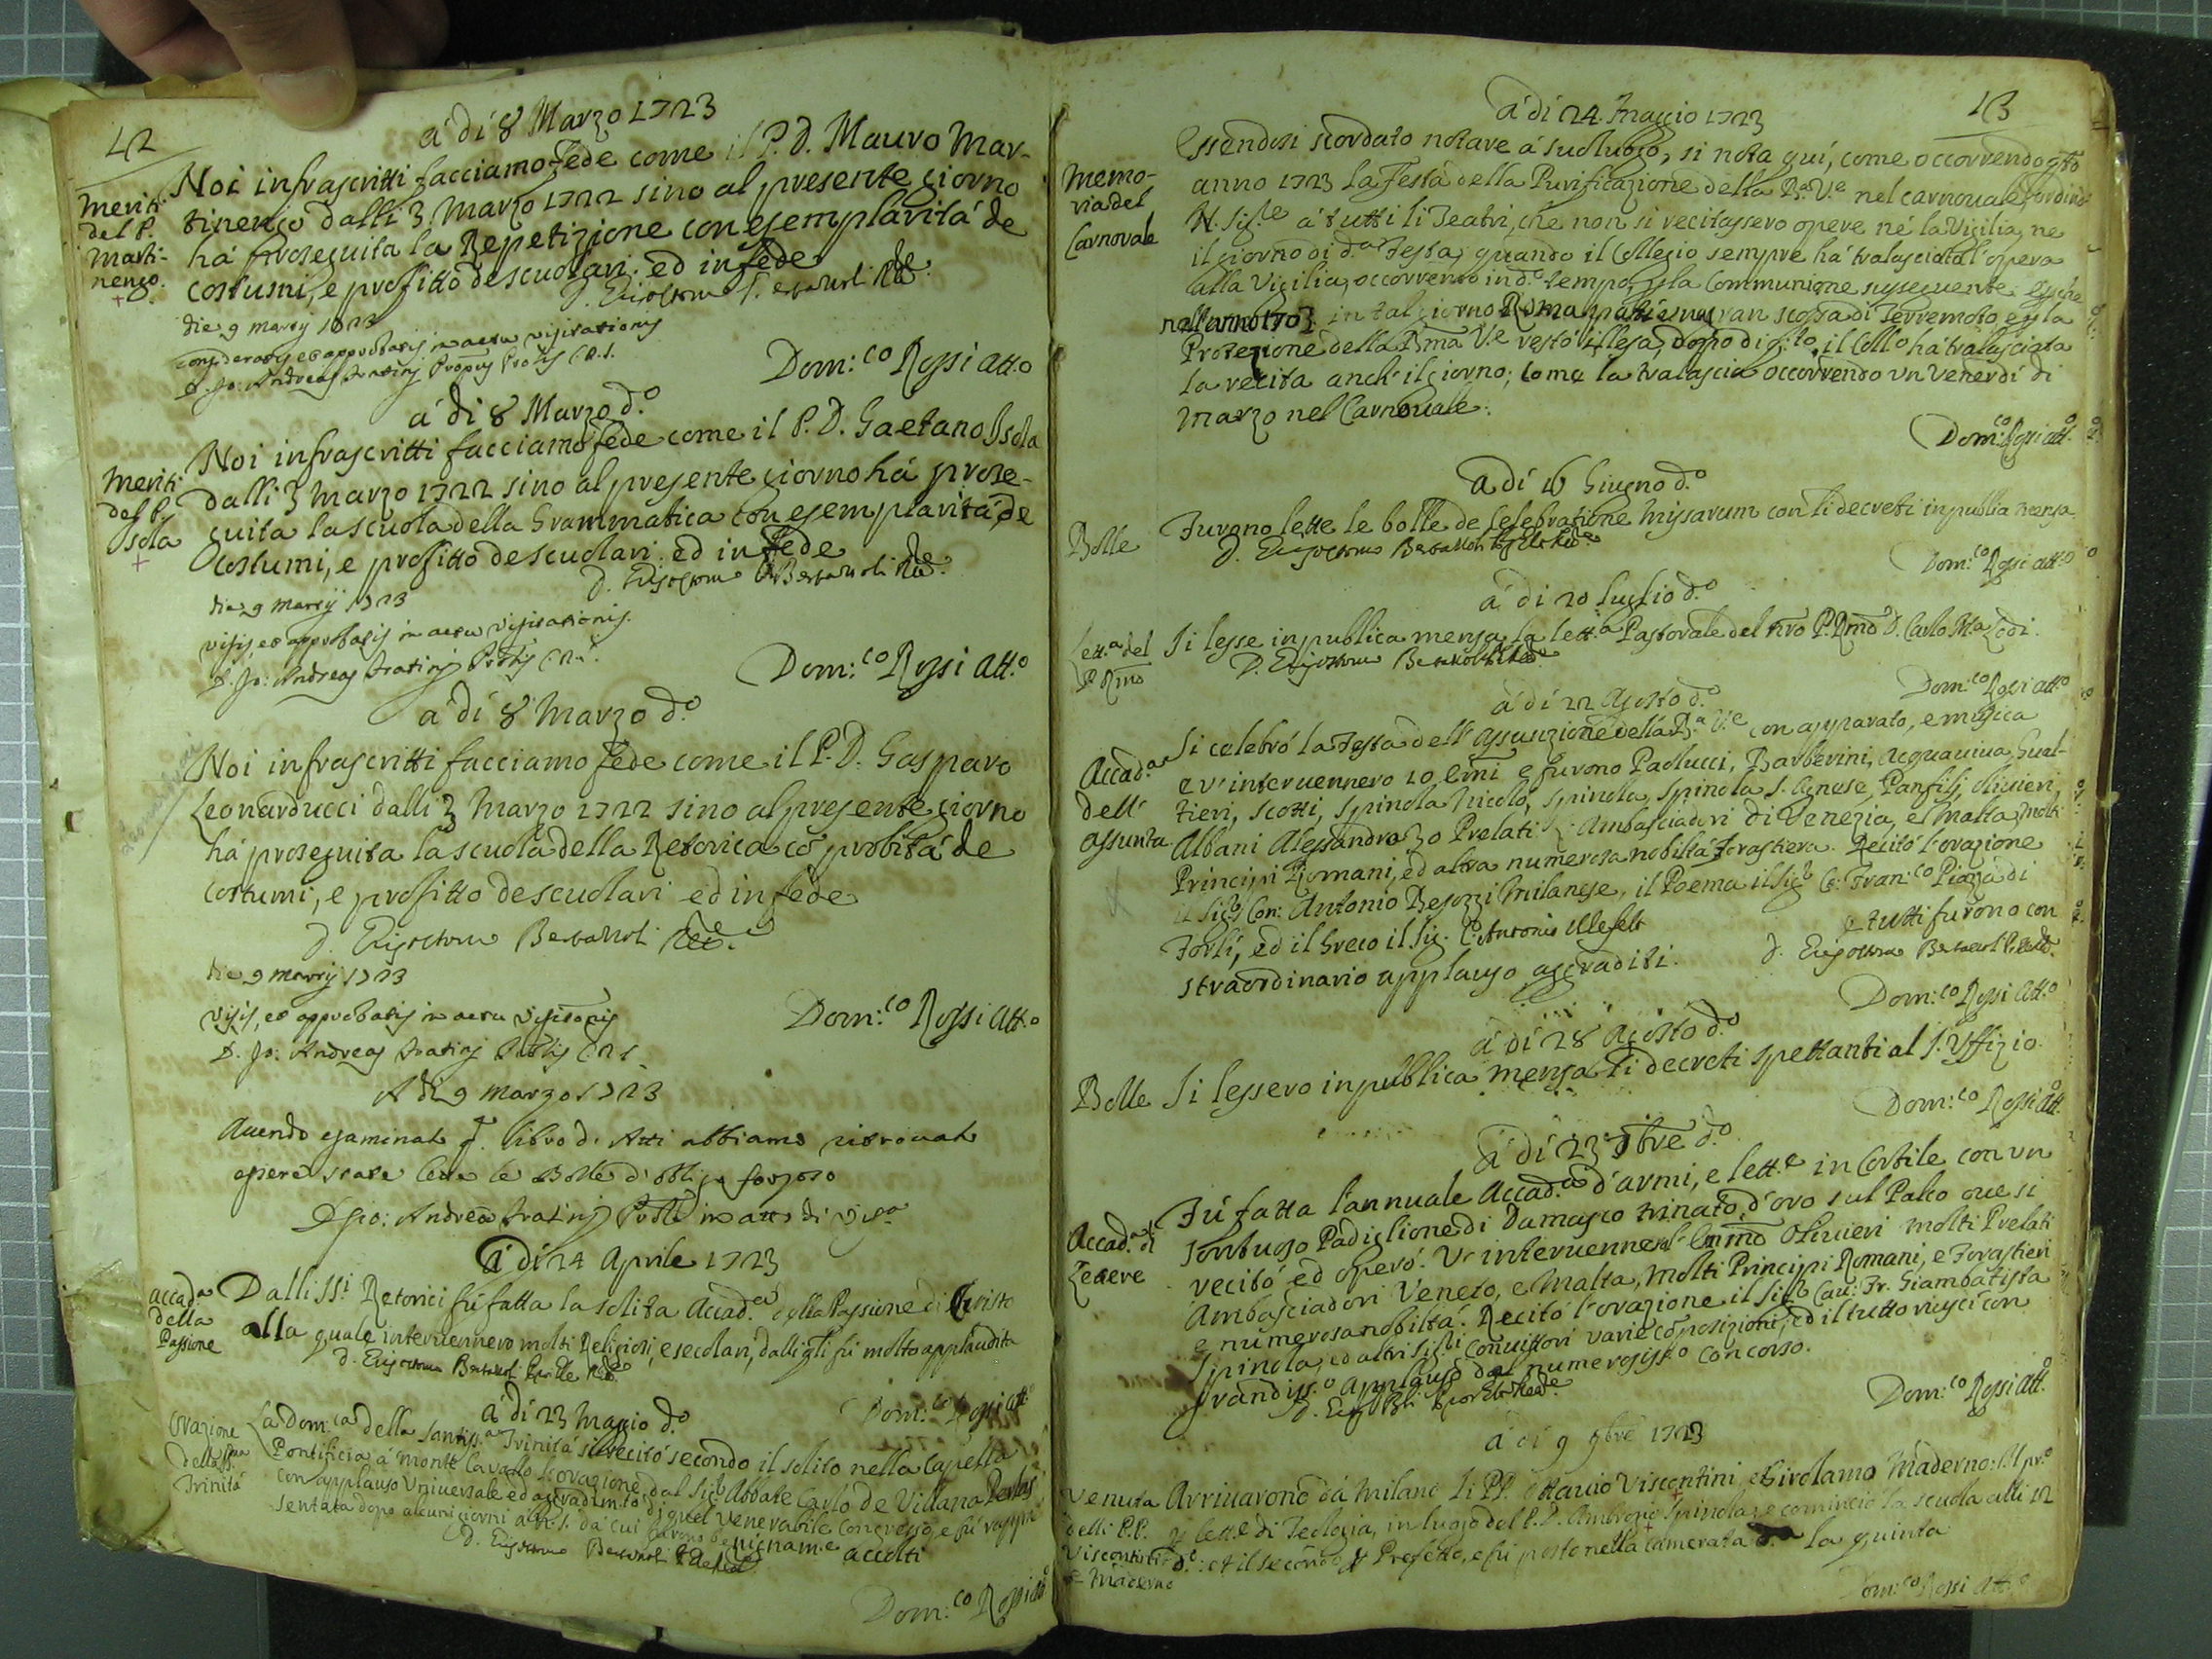 42
á dí 8 Marzo 1723
Noi infrascritti facciamo fede come il P. D. Mauro Mar-
Meriti
del P.
Marti-
nengo.
tinengo dalli 3 Marzo 1722 sino al presente giorno
há proseguita la Repetizione con esemplaritá de
costumi, e profitto de scuolari. ed in fede
die 9 martij 1723
D. Jo: Andreas
Dom:co Rossi att.o
á di 8 Marzo d.o
Noi infrascritti facciamo fede come il P. D. Gaetano Isola
Meriti
del P.
Isola
dalli 3 Marzo 1722 sino al presente giorno há prose-
guita la scuola della Grammatica con esemplaritá de
costumi, e profitto de scuolari. ed in fede
die 9 martij 1723
visis, et approbatis in actu visitationis.
D. Jo: Andreas
Dom:co Rossi att.o
á dí 8 Marzo d.o
Noi infrascritti facciamo fede come il P. D. Gasparo
Leonarducci dalli 3 Marzo 1722 sino al presente giorno
há proseguita la scuola della Retorica cō probitá de
costumi, e profitto de scuolari ed in fede
die 9 martij 1723
visis, et approbatis in actu
D. Jo: Andreas
Dom:co Rossi att.o
A dí 9 marzo 1723
Avendo esaminato libro d. Atti abbiamo ritrovato
essere state lette le Bolle d'obbligo
á dí 24 Aprile 1723
Accad.a
della
Passione
Dalli SS.i Retorici fú fatta la solita Accad.a della Passione di Cristo
alla quale intervennero molti Religiosi, e secolari, dalli qli fú molto applaudita
Dom:co Rossi att.o
á dí 23 Maggio d.o
Orazione
della SSma
Trinitá
La Dom:ca della Santiss.a Trinitá si recitó secondo il solito nella Capella
Pontificia á Monte Cavallo l'orazione dal Sig.r Abbate Carlo de Villana Perlas
con applauso Universale ed aggradimto di quel Venerabile Congresso, e fú rappre
sentata dopo alcuni giorni a N. S. da cui furono benignam.e accolti
Dom:co Rossi att.o
43
á dí 24. Maggio 1723
Memo-
ria del
Carnovale
Essendosi scordato notare á suo luogo, si nota quí, come occorrendo qsto
anno 1723 la Festa della Purificazione della B.a V.e nel carnovale, ordinò
N. Sig.re á tutti li Teatri, che non si recitassero opere né la Vigilia, ne
il giorno di d.a Festa; quando il Collegio sempre há tralasciata l'opera
alla Vigilia, occorrendo in d.o tempo, p la Communione susseguente. E pche
nell'anno 1703 in tal giorno Roma patí una gran scossa di Terremoto e p la
Protezione della Bma V.e restó illesa, dopo di q.to il Coll.o há tralasciata
la recita anch'il giorno; come la tralascia occorrendo un Venerdí di
Marzo nel Carnovale.
Dom:co Rossi att.o
A dí 16 Giugno d.o
Bolle
Furono lette le bolle de Celebratione Missarum con li decreti in publia mensa
Dom:co Rossi att.o
á di 20 luglio d.o
Lett.a del
P. Rmo
Si lesse in publica mensa la lett.a Pastorale del nro P. Rmo D. Carlo M.a Lodi.
Dom:co Rossi att.o
á dí 22 Agosto d.o
Accad.a
dell'
Assunta
Si celebró la Festa dell'Assunzione della B.a V.e con apparato, e musica
e v'intervennero 10 Emi e furono Paolucci, Barberini, Acquaviva, Gual-
tieri, Scotti, Spinola Nicoló, Spinola, Spinola S. Agnese, Panfilj, Olivieri,
Albani Alessandro 30 Prelati Ambasciadori di Venezia, e Malta, molti
Principi Romani, ed altra numerosa nobiltá Forastiera. Recitó l'orazione
il Sig.r Con: Antonio Regozzi Milanese, il Poema il Sig.r Co: Fran.co Piazza di
Forlí, ed il Greco il Sig. C. Antonio
e tutti furono con
straordinario applauso aggraditi.
Dom:co Rossi att.o
á dí 28 Agosto d.o
Bolle
Si lessero in pubblica mensa li decreti spettanti al S. Uffizio.
Dom:co Rossi att.o
á dí 23 7bre d.o
Accad.a di
Lettere
Fú fatta l'annuale Accad.a d'armi, e lett.e in Cortile con un
sontuoso Padiglione di Damasco trinato d'oro sul Palco ove si
recitó ed operó. V'intervenne l'Emmo Olivieri molti Prelati
Ambasciadori Veneto, e Malta, Molti Principi Romani, e Forastieri
e numerosa nobiltá. Recitó l'orazione il Sig.r Cav: Fr. Giambatista
Spinola, ed altri Sig.ri Convittori varie cōposizioni, ed il tutto riuscí con
grandiss.o applauso dal numerosiss.o concorso.
Dom:co Rossi att.o
á dí 9 9bre 1723
Venuta
delli P.P.
Viscontini
e Maderno
Arrivarono dá Milano li PP. Ottavio Viscontini, e Girolamo Maderno: Il pr.o
p lett.e di Teologia, in luogo del P. D. Ambrogio Spinola, e cominció la scuola alli 12
d.o: et il secondo p Prefetto, e fú posto nella camerata la quinta
Dom:co Rossi Att.o